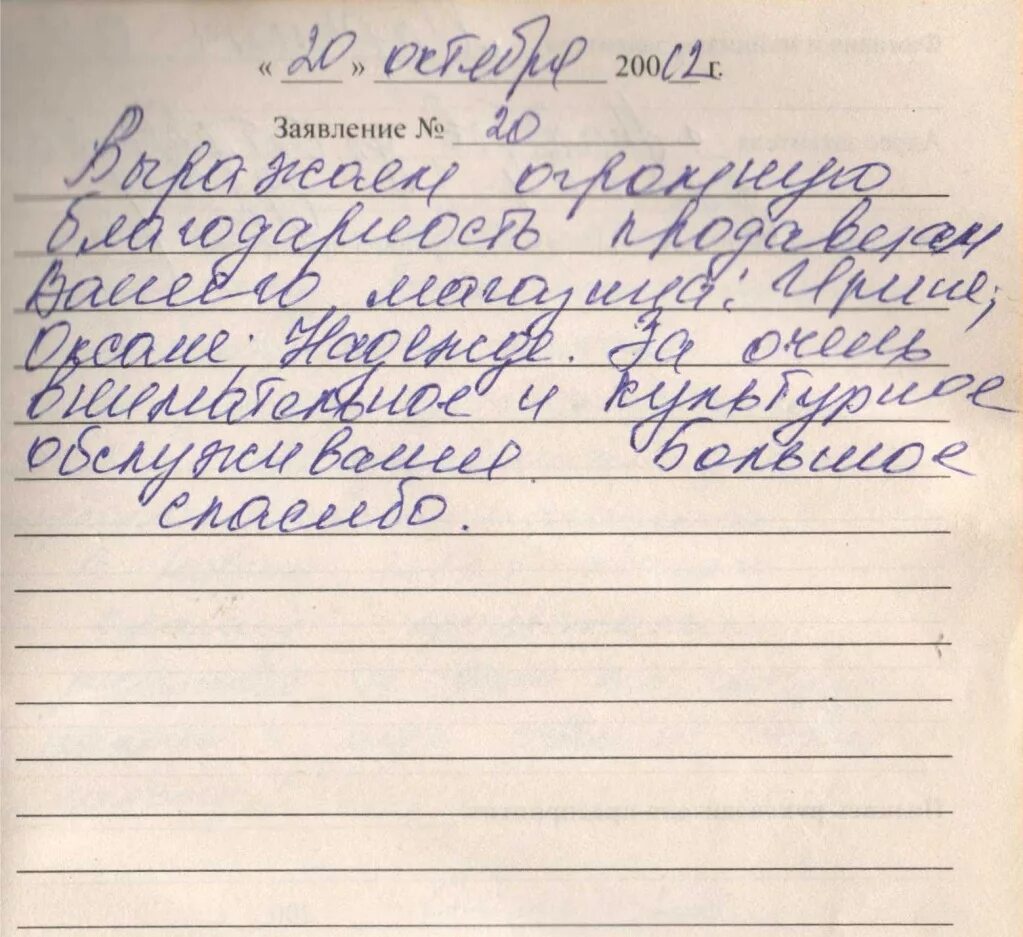 « 20 » октября 20012 г.
Заявление № 20
Выражаем огромную
благодарность продавцам
Вашего магазина: Ирине;
Оксане; Надежде. За очень
внимательное и культурное
обслуживание большое
спасибо.